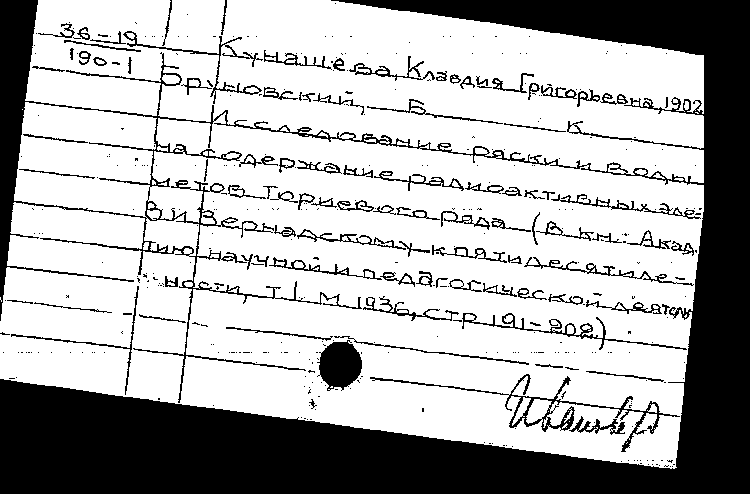 36-19
190-1
Кунашева, Клавдия Григорьевна, 1902
Бруновский, Б. К.
Исследование ряски и воды
на содержание радиоактивных эле-
метов ториевого ряда (В кн: Акад.
В И Вернадскому к пятидесятиле-
тию научной и педагогической деятель
ности, т I. М 1936, стр 191-202)